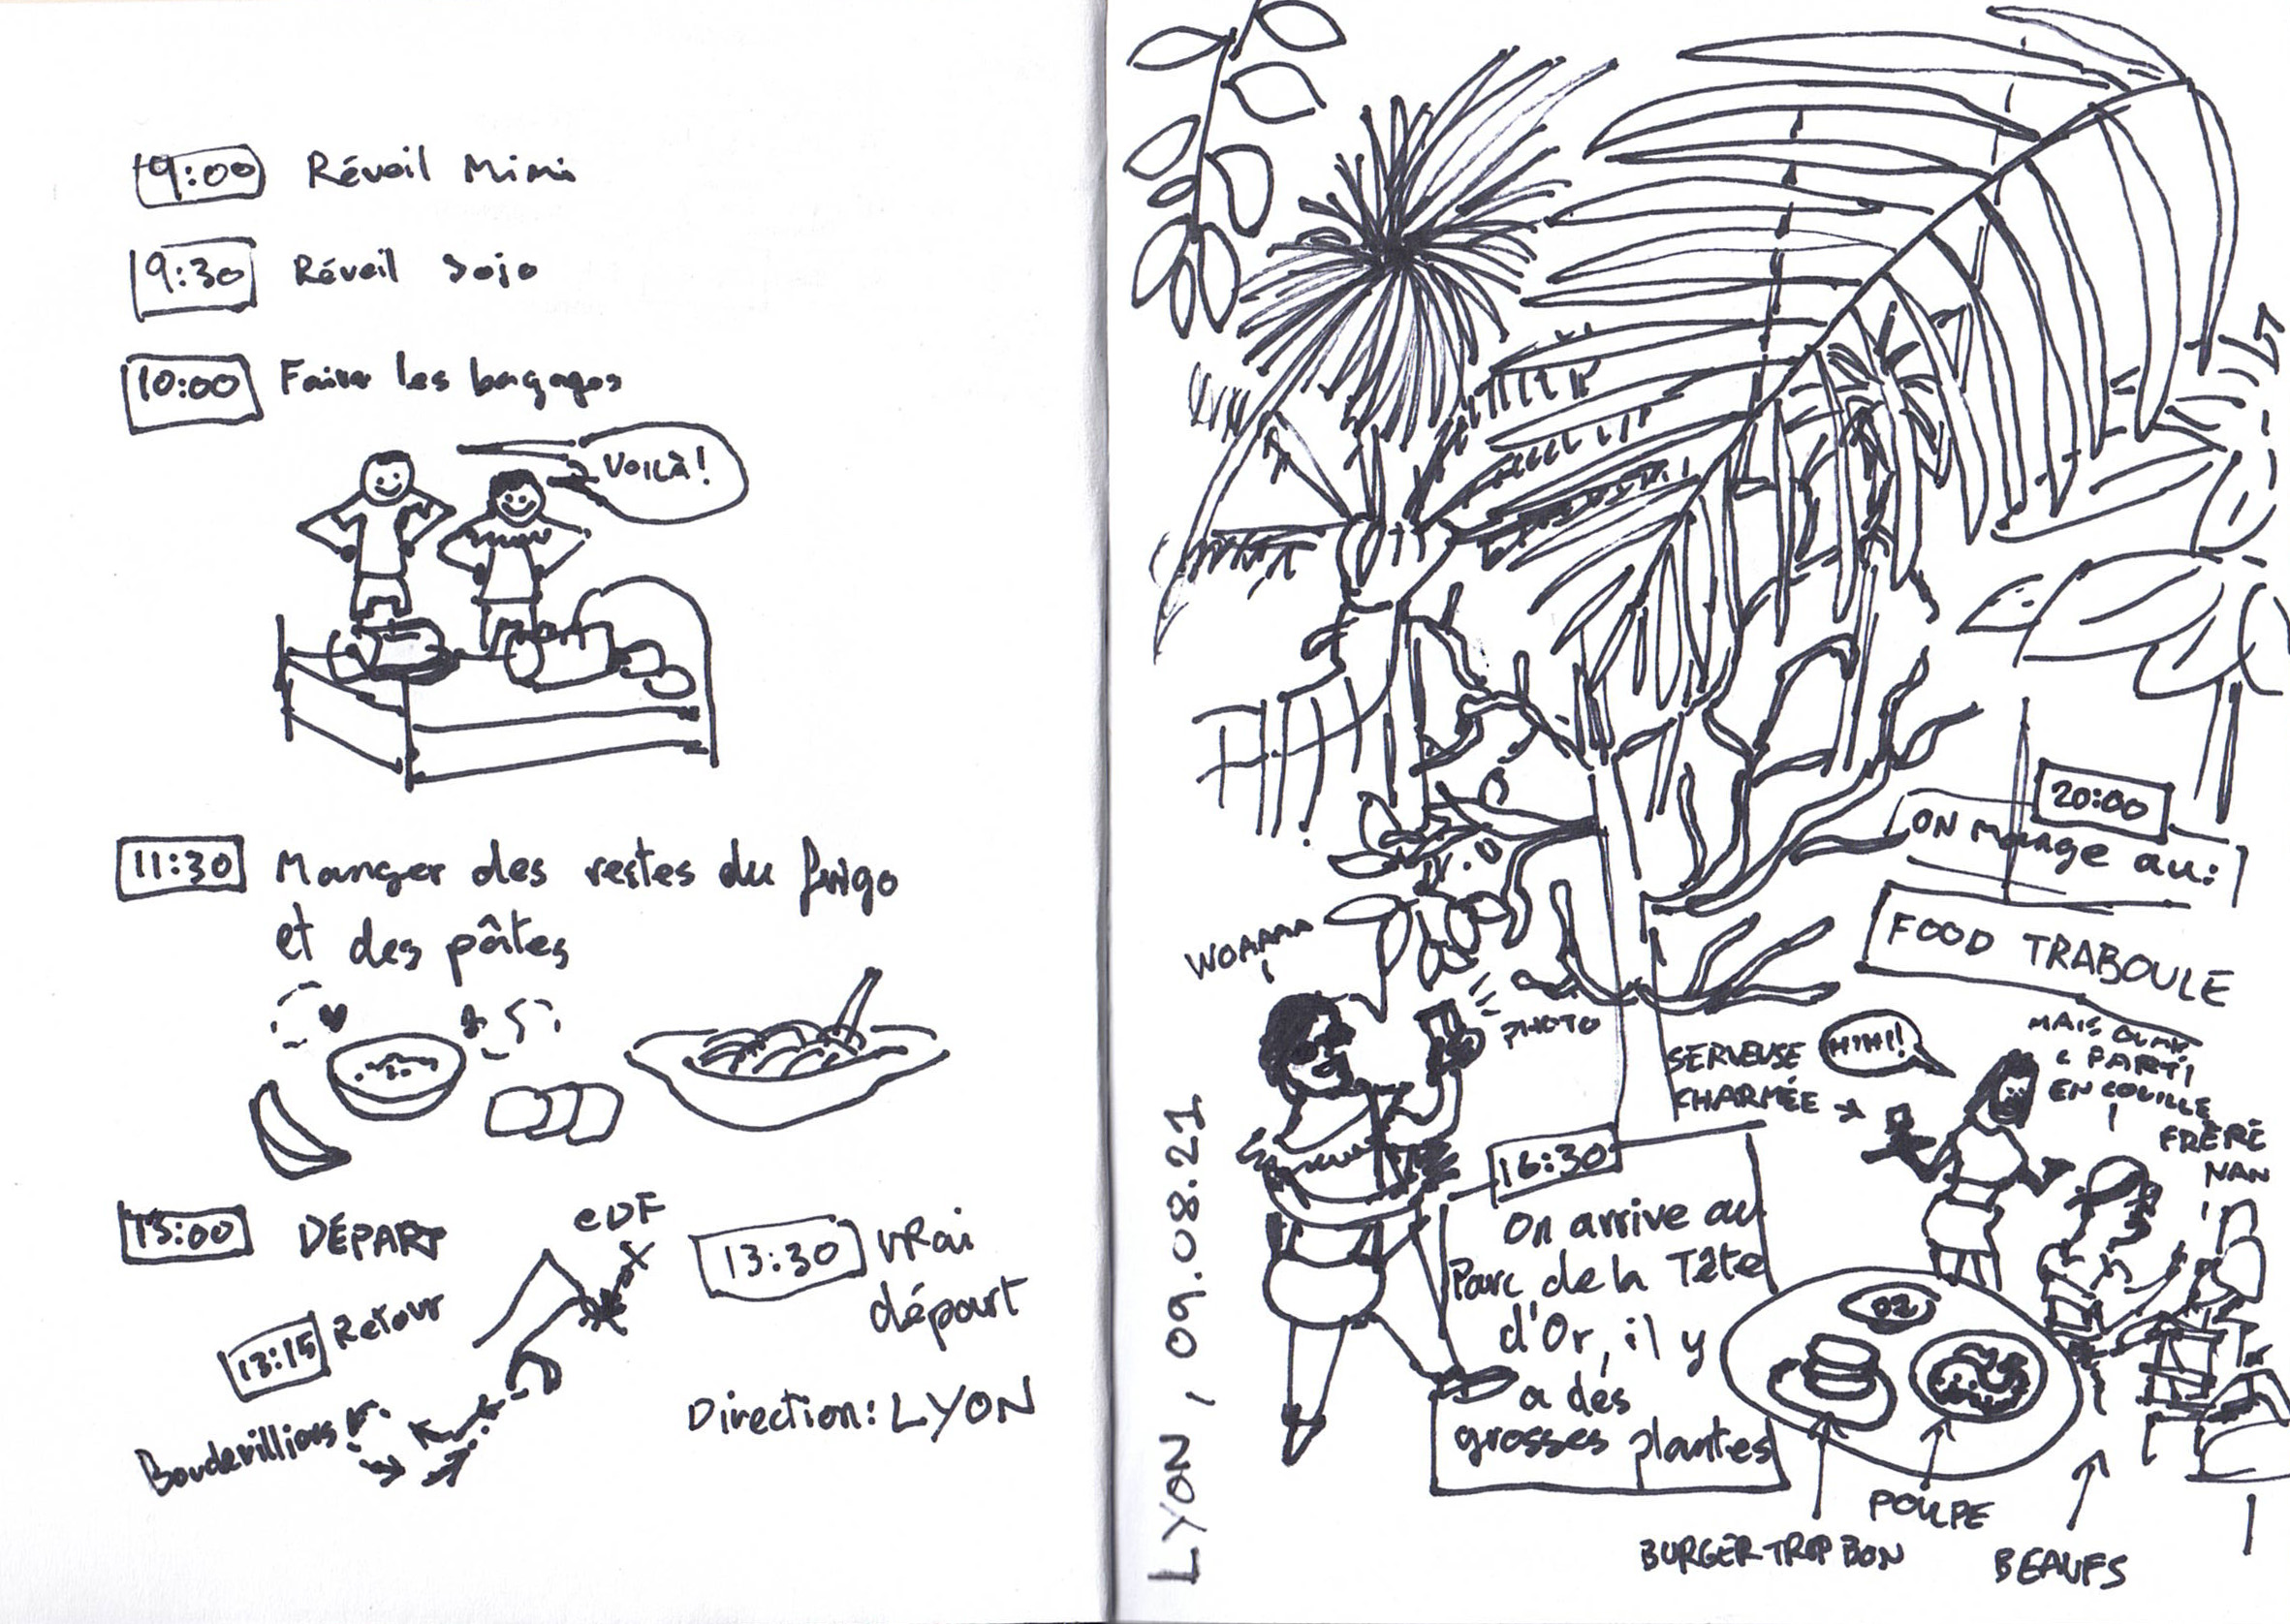 9:00 Réveil Mimi
9:30 Réveil Jojo
10:00 Faire les bagages
VOILÀ!
11:30 Manger des restes du frigo
et des pâtes
13:00 DÉPART
EDF
13:15 Retour
Boudevilliers
13:30 vrai
départ
Direction: LYON
LYON, 09.08.21
WOAAAA
PHOTO
16:30
On arrive au
Parc de la Tête
d'Or, il y
a des
grosses plantes
20:00
ON mange au:
FOOD TRABOULE
SERVEUSE
CHARMÉE
HIHI!
MAIS
C PARTI
EN COUILLE
!
FRÈRE
NAN
BURGER TROP BON
POULPE
BEAUFS